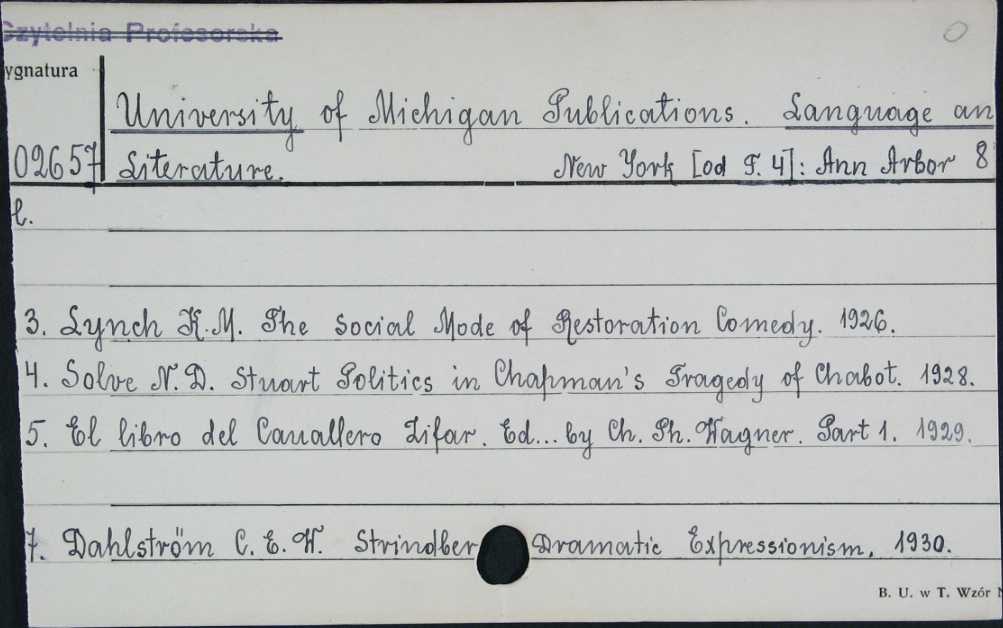 Czytelnia Profesorska
0
ygnatura
University of Michigan Publications. Language an
02657 Literature. New York [od T. 4]: Ann Arbor 8
l.
3. Lynch K.M. The Social Mode of Restoration Comedy. 1926.
4. Solve N.D. Stuart Politics in Chapman's Tragedy of Chabot. 1928.
5. El libro del Cauallero Zifar. Ed... by Ch. Ph. Wagner. Part 1. 1929.
7. Dahlström C.E.W. Strindber Dramatic Expressionism. 1930.
B. U. w T. Wzór N